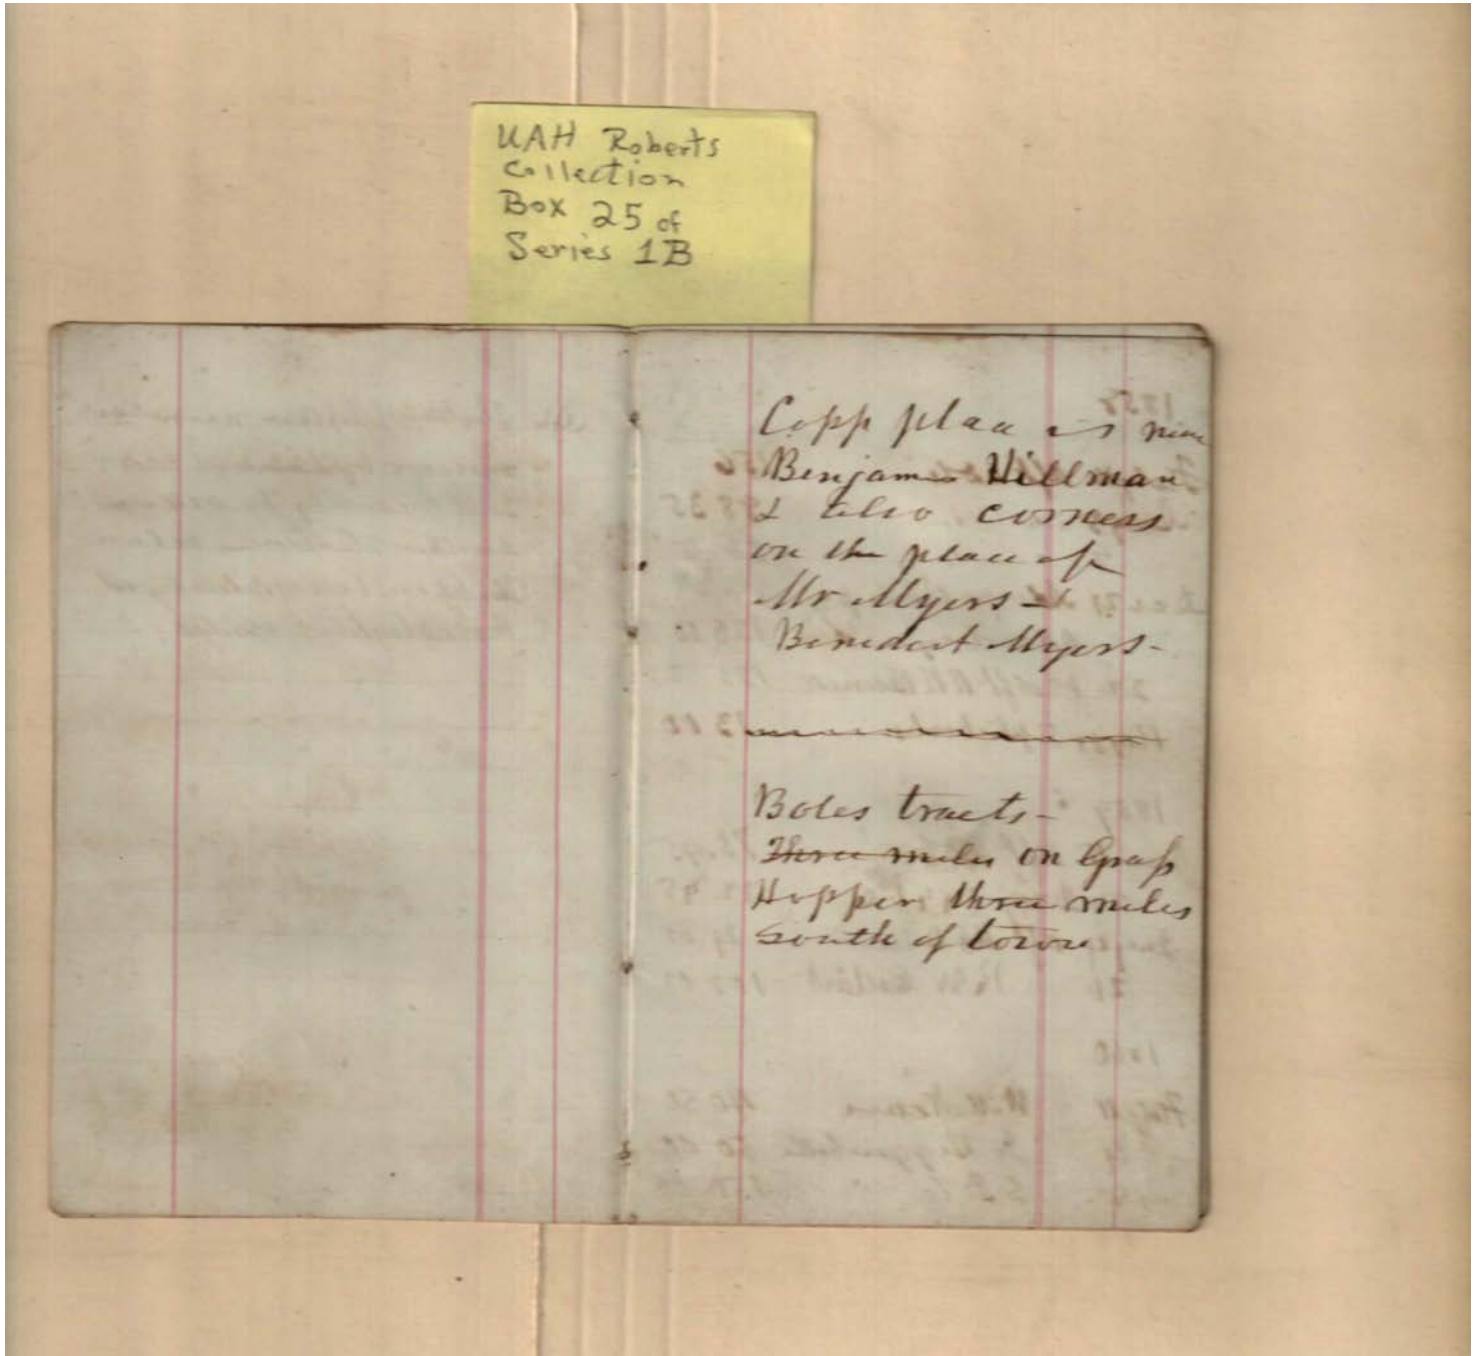 UAH Roberts
Collection
Box 25 of
Series 1B
Copp place is near
Benjamin Hillman
& also corners
on the place of
Mr Myers &
Benedict Myers-
Boles tracts-
Three miles on Grass
Hopper three miles
south of town